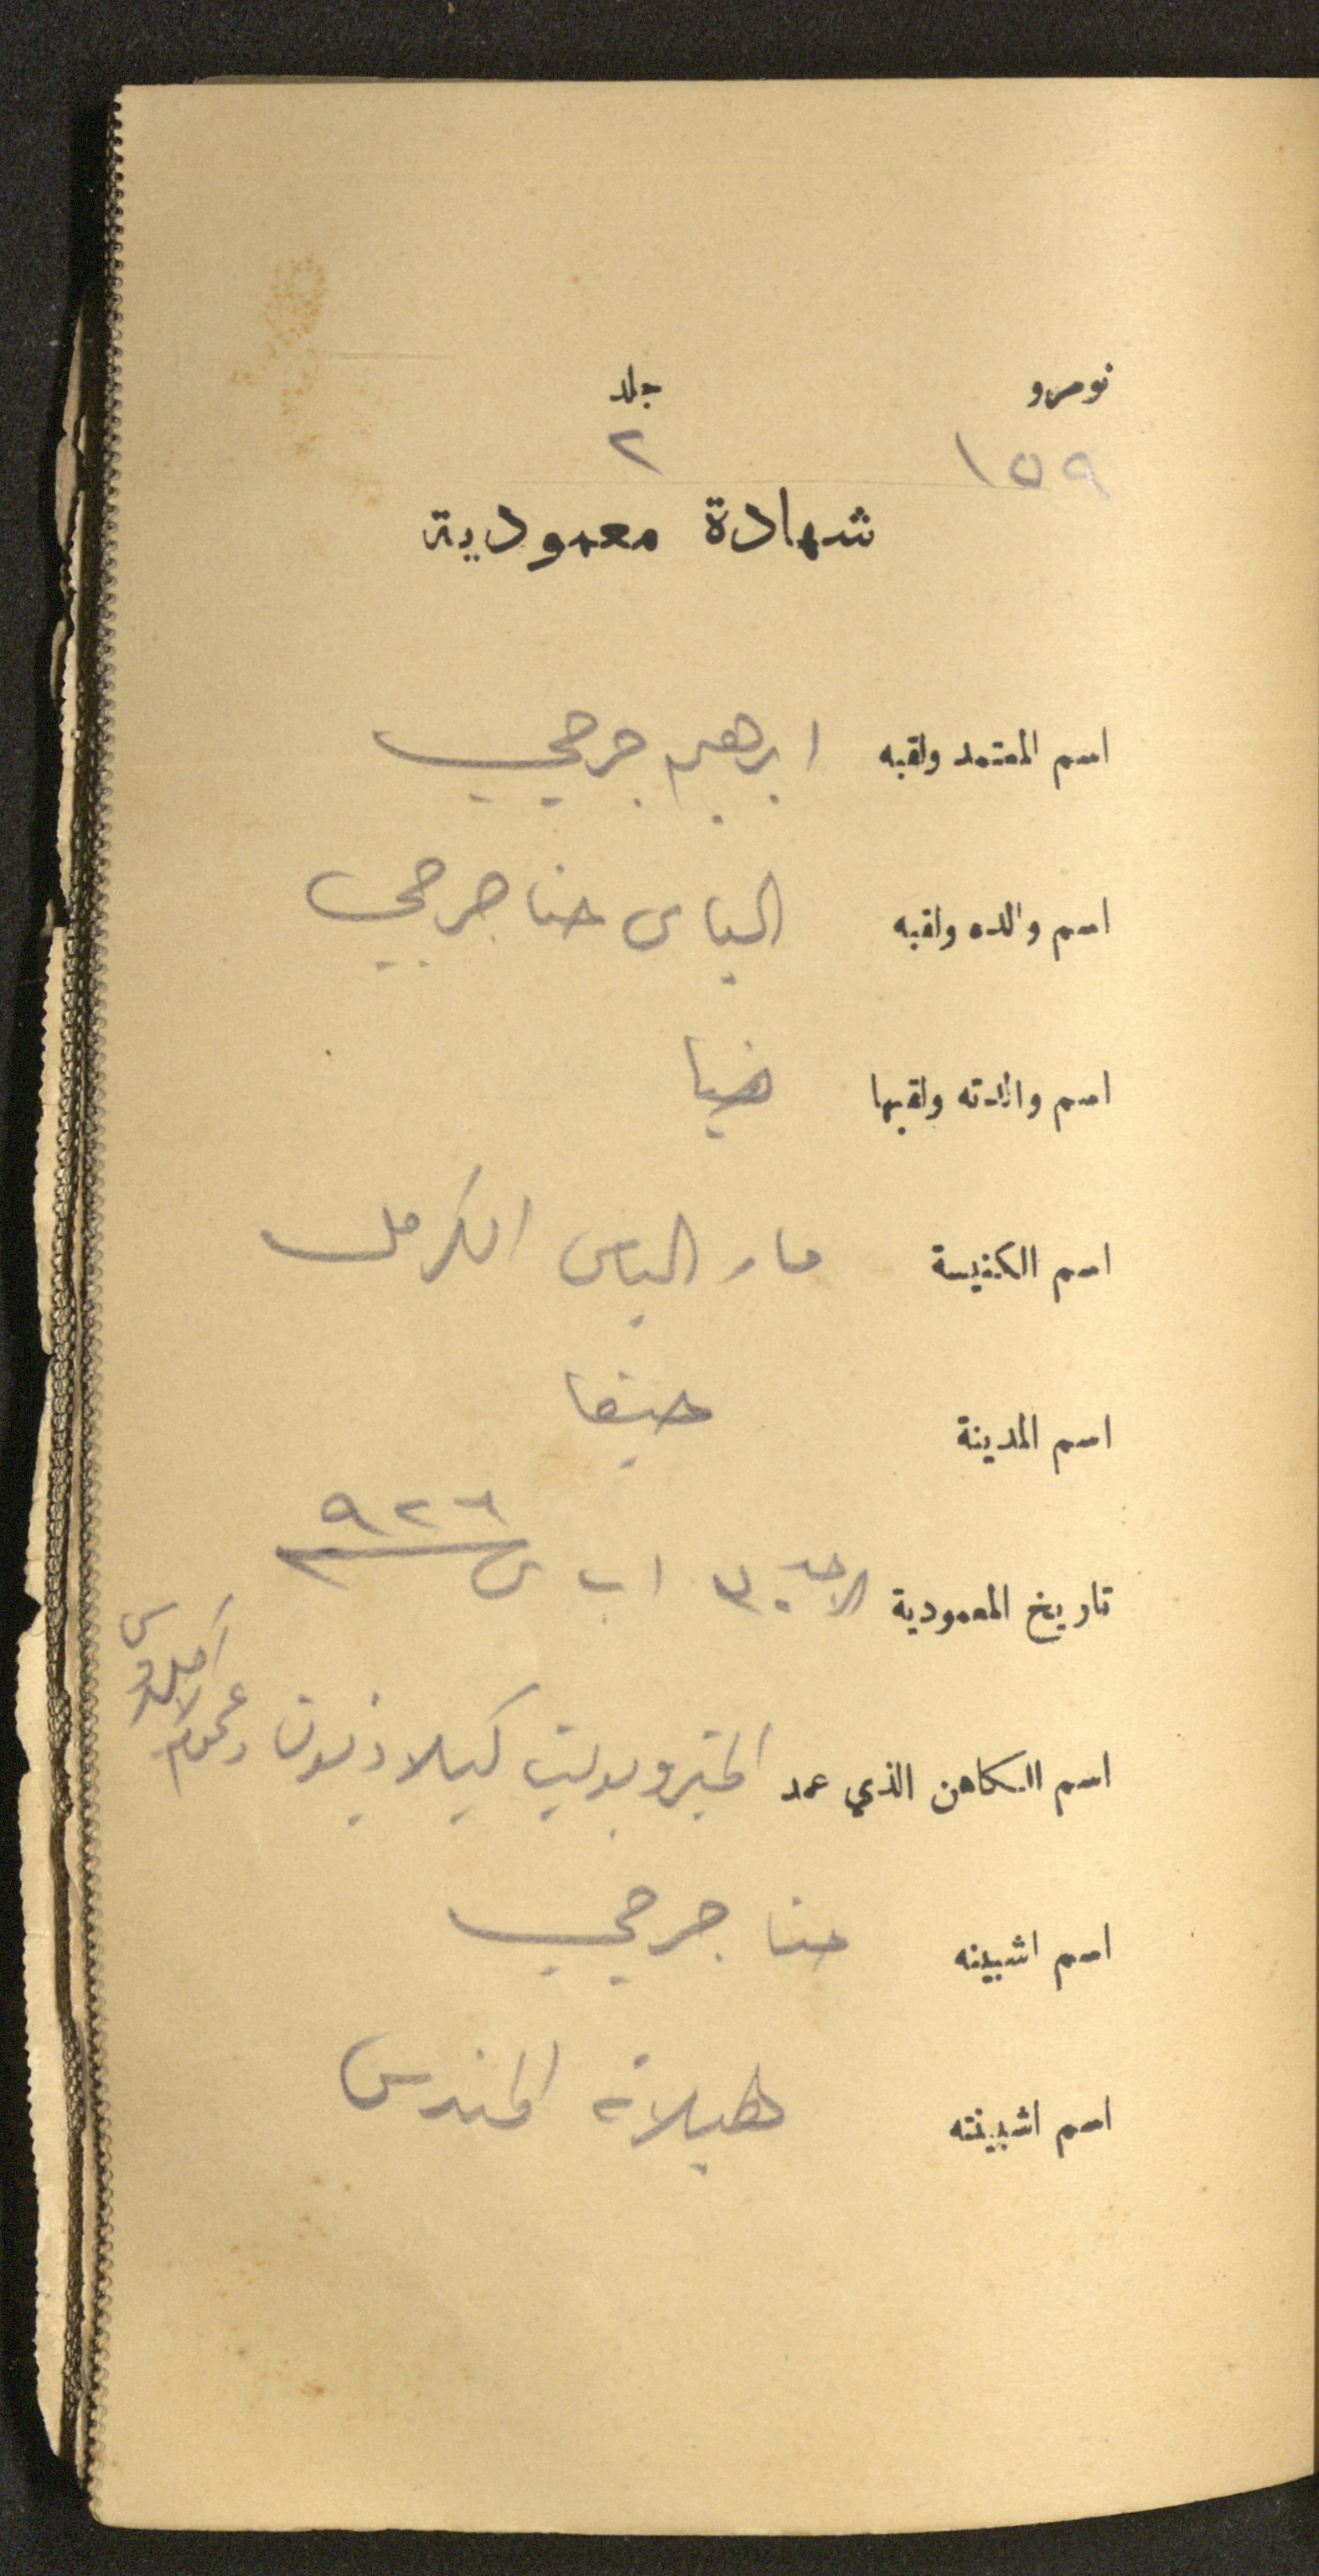 نومرو جلد
١٥٩ ٢
شهادة معمودية
اسم المعتمد ولقبه ابرهيم جرجي
اسم والده ولقبه الياس حنا جرجي
اسم والدته ولقبها
اسم الكنيسة مار الياس الكرمل
اسم المدينة حيفا
تاريخ المعمودية الاحد ٣٠ اب س ٩٢٦
اسم الكاهن الذي عمد المتروبوليت كيلاذيون
اسم اشبينه حنا جرجي
اسم اشبينته هيلانة المندس